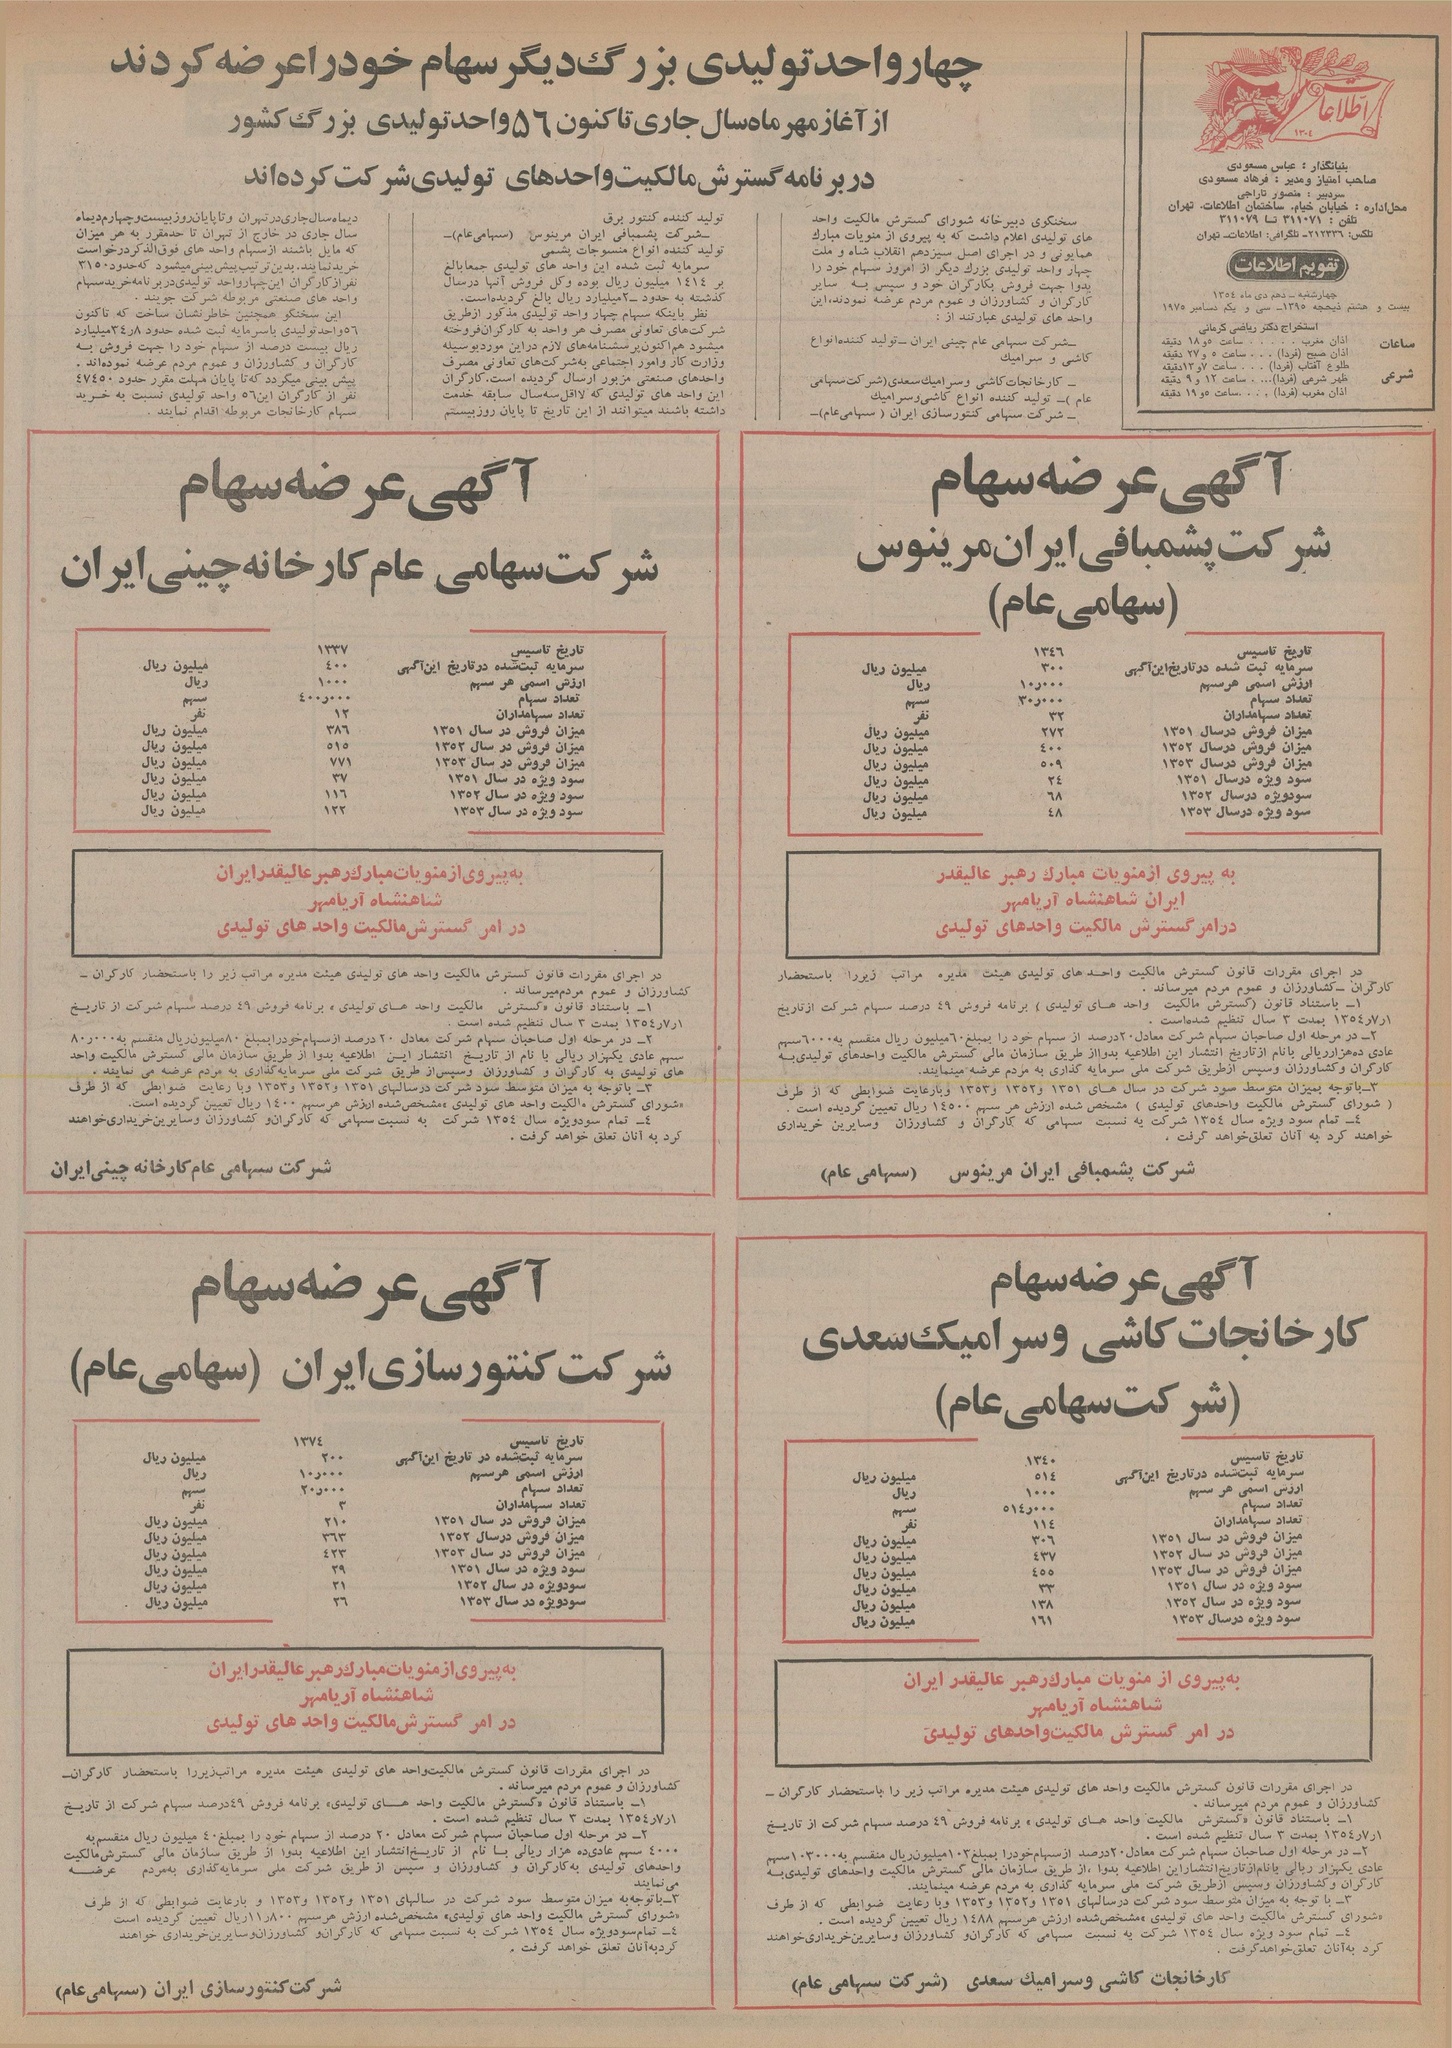 اطلاعات
۱۳۰٤
بنیانگذار : عباس مسعودی
صاحب امتیاز ومدیر : فرهاد مسعودی
سردبیر : منصور تاراجی
محل‌اداره : خیابان خیام، ساختمان اطلاعات، تهران
تلفن : ۳۱۱۰۷۱ تا ۳۱۱۰۷۹
تلکس: ۲۱۲۳۳۶ـ تلگرافی: اطلاعات‌ـ تهران
تقویم اطلاعات
چهارشنبه ـ دهم دی ماه ۱۳٥٤
بیست و هشتم ذیحجه ۱۳۹٥ـ سی و یکم دسامبر ۱۹۷٥
استخراج دکتر ریاضی کرمانی
ساعات شرعی
اذان مغرب . . . . . ساعت ٥و ۱۸ دقیقه
اذان صبح (فردا) . . . ساعت ٥ و ۲۷ دقیقه
طلوع آفتاب (فردا) . . . ساعت ۷و۱۳دقیقه
ظهر شرعی (فردا)... . ساعت ۱۲ و ۹ دقیقه
اذان مغرب (فردا) . . . .ساعت ٥و ۱۹ دقیقه
چهارواحدتولیدی بزرگ‌دیگر سهام خودراعرضه‌کردند
از آغاز مهرماه‌سال جاری تاکنون ٥٦واحدتولیدی بزرگ‌کشور
دربرنامه گسترش‌مالکیت‌واحدهای تولیدی‌شرکت کرده‌اند
سخنگوی دبیرخانه شورای گسترش مالکیت واحد
های تولیدی اعلام داشت که به پیروی از منویات مبارک
همایونی و در اجرای اصل سیزدهم انقلاب شاه و ملت
چهار واحد تولیدی بزرك دیگر از امروز سهام خود را
بدوا جهت فروش بکارگران خود و سپس به سایر
کارگران و کشاورزان و عموم مردم عرضه نمودند، این
واحد های تولیدی عبارتند از :
ـ شرکت سهامی عام چینی ایران ـ تولید کننده‌انواع
کاشی و سرامیك
ـ کارخانجات‌کاشی وسرامیك‌سعدی(شرکت‌سهامی
عام )ـ تولید کننده انواع کاشی‌وسرامیك
ـ شرکت سهامی کنتورسازی ایران ( سهامی‌عام)ـ
تولید کننده کنتور برق
ـ شرکت پشمبافی ایران مرینوس (سهامی‌عام)ـ
تولید کننده انواع منسوجات پشمی
سرمایه ثبت شده این واحد های تولیدی جمعابالغ
بر ۱٤۱٤ میلیون ریال بوده وکل فروش آنها درسال
گذشته به حدود ۲ـمیلیارد ریال بالغ گردیده‌است.
نظر باینکه سهام چهار واحد تولیدی مذکور ازطریق
شرکت‌های تعاونی مصرف هر واحد به کارگران‌فروخته
میشود هم‌اکنون‌پرسشنامه‌های لازم دراین موردبوسیله
وزارت کار وامور اجتماعی به‌شرکت‌های تعاونی مصرف
واحدهای صنعتی مزبور ارسال گردیده است.کارگران
این واحد های تولیدی که لااقل‌سه‌سال سابقه خدمت
داشته باشند میتوانند از این تاریخ تا پایان روزبیستم
دیماه‌سال جاری‌درتهران وتاپایان‌روزبیست‌وچهارم‌دیماه
سال جاری در خارج از تهران تا حدمقرر به هر میزان
که مایل باشند ازسهام واحد های فوق‌الذکردرخواست
خریدنمایند. بدین‌ترتیب‌پیش‌بینی‌میشود که‌حدود۳۱٥۰
نفرازکارگران این‌چهارواحد تولیدی‌دربرنامه‌خریدسهام
واحد های صنعتی مربوطه شرکت جویند .
این سخنگو همچنین خاطرنشان ساخت که تاکنون
٥٦واحدتولیدی باسرمایه ثبت شده حدود ۳٤٫۸میلیارد
ریال بیست درصد از سهام خود را جهت فروش به
کارگران و کشاورزان و عموم مردم عرضه نموده‌اند .
پیش بینی میگردد که‌تا پایان مهلت مقرر حدود ٤۷٤٥۰
نفر از کارگران این٥٦ واحد تولیدی نسبت به خرید
سهام کارخانجات مربوطه اقدام نمایند .
آگهی‌عرضه‌سهام
شرکت‌پشمبافی‌ایران‌مرینوس
(سهامی‌عام)
تاریخ تاسیس ۱۳٤٦
سرمایه ثبت شده درتاریخ‌این‌آگهی ۳۰۰ میلیون ریال
ارزش اسمی هرسهم ۱۰٫۰۰۰ ریال
تعداد سهام ۳۰٫۰۰۰ سهم
تعداد سهامداران ۳۲ نفر
میزان فروش درسال ۱۳٥۱ ۲۷۲ میلیون ریال
میزان فروش درسال ۱۳٥۲ ٤۰۰ میلیون ریال
میزان فروش درسال ۱۳٥۳ ٥۰۹ میلیون ریال
سود ویژه درسال ۱۳٥۱ ۲٤ میلیون ریال
سودویژه درسال ۱۳٥۲ ٦۸ میلیون ریال
سود ویژه درسال ۱۳٥۳ ٤۸ میلیون ریال
به پیروی ازمنویات مبارك رهبر عالیقدر
ایران شاهنشاه آریامهر
درامرگسترش مالکیت واحدهای تولیدی
در اجرای مقررات قانون گسترش مالکیت واحـد های تولیدی هیئت مدیره مراتب زیررا باستحضار
کارگران ـ کشاورزان و عموم مردم میرساند .
۱ـ باستناد قانون (گسترش مالکیت واحد های تولیدی ) برنامه فروش ٤۹ درصد سهام شرکت ازتاریخ
۱ر۷ر۱۳٥٤ بمدت ۳ سال تنظیم شده‌است .
۲ـ در مرحله اول صاحبان سهام شرکت معادل۲۰درصد از سهام خود را بمبلغ٦۰میلیون ریال منقسم به٦۰۰۰سهم
عادی ده‌هزارریالی بانام ازتاریخ انتشار این اطلاعیه بدوااز طریق سازمان مالی گسترش مالکیت واحدهای تولیدی‌به
کارگران وکشاورزان وسپس ازطریق شرکت ملی سرمایه گذاری به مردم عرضه مینمایند.
۳ـ باتوجه بمیزان متوسط سود شرکت در سال های ۱۳٥۱ و۱۳٥۲ و۱۳٥۳ وبارعایت ضوابطی که از طرف
( شورای گسترش مالکیت واحدهای تولیدی ) مشخص شده ارزش هر سهم ۱٤٥۰۰ ریال تعیین گردیده است .
٤ـ تمام سود ویژه سال ۱۳٥٤ شرکت به نسبت سهامی که کارگران و کشاورزان وسایرین خریداری
خواهند کرد به آنان تعلق‌خواهد گرفت .
شرکت پشمبافی ایران مرینوس (سهامی عام)
آگهی‌عرضه‌سهام
شرکت‌سهامی عام کارخانه‌چینی‌ایران
تاریخ تاسیس ۱۳۳۷
سرمایه ثبت‌شده درتاریخ این‌آگهی ٤۰۰ میلیون ریال
ارزش اسمی هر سهم ۱۰۰۰ ریال
تعداد سهام ٤۰۰٫۰۰۰ سهم
تعداد سهامداران ۱۲ نفر
میزان فروش در سال ۱۳٥۱ ۳۸٦ میلیون ریال
میزان فروش در سال ۱۳٥۲ ٥۱٥ میلیون ریال
میزان فروش در سال ۱۳٥۳ ۷۷۱ میلیون ریال
سود ویژه در سال ۱۳٥۱ ۳۷ میلیون ریال
سود ویژه در سال ۱۳٥۲ ۱۱٦ میلیون ریال
سود ویژه در سال ۱۳٥۳ ۱۲۲ میلیون ریال
به‌پیروی‌ازمنویات‌مبارك‌رهبرعالیقدرایران
شاهنشاه آریامهر
در امر گسترش‌مالکیت واحد های تولیدی
در اجرای مقررات قانون گسترش مالکیت واحد های تولیدی هیئت مدیره مراتب زیر را باستحضار کارگران ـ
کشاورزان و عموم مردم‌میرساند .
۱ـ باستناد قانون «گسترش مالکیت واحد هـای تولیدی » برنامه فروش ٤۹ درصد سهام شرکت از تاریخ
۱ر۷ر۱۳٥٤ بمدت ۳ سال تنظیم شده است .
۲ـ در مرحله اول صاحبان سهام شرکت معادل ۲۰ درصد ازسهام‌خودرابمبلغ ۸۰میلیون‌ریال منقسم به۸۰٫۰۰۰
سهم عادی یکهزار ریالی با نام از تاریخ انتشار ایـن اطلاعیه بدوا از طریق سازمان مالی گسترش مالکیت واحد
های تولیدی به کارگران و کشاورزان وسپس‌از طریق شرکت ملی سرمایه‌گذاری به مردم عرضه می نمایند .
۳ـ باتوجه به میزان متوسط سود شرکت درسالهای ۱۳٥۱ و۱۳٥۲ و۱۳٥۳ وبا رعایت ضوابطی که از طرف
«شورای گسترش مالکیت واحد های تولیدی »مشخص‌شده ارزش هرسهم ۱٤۰۰ ریال تعیین گردیده است.
٤ـ تمام سودویژه سال ۱۳٥٤ شرکت به نسبت سهامی که کارگران‌و کشاورزان وسایرین‌خریداری‌خواهند
کرد به آنان تعلق خواهد گرفت .
شرکت سهامی عام‌کارخانه چینی‌ایران
آگهی‌عرضه‌سهام
کارخانجات‌کاشی وسرامیك‌سعدی
(شرکت‌سهامی‌عام)
تاریخ تاسیس ۱۳٤۰
سرمایه ثبت‌شده درتاریخ این‌آگهی ٥۱٤ میلیون ریال
ارزش اسمی هر سهم ۱۰۰۰ ریال
تعداد سهام ٥۱٤٫۰۰۰ سهم
تعداد سهامداران ۱۱٤ نفر
میزان فروش در سال ۱۳٥۱ ۳۰٦ میلیون ریال
میزان فروش در سال ۱۳٥۲ ٤۳۷ میلیون ریال
میزان فروش در سال ۱۳٥۳ ٤٥٥ میلیون ریال
سود ویژه در سال ۱۳٥۱ ۳۳ میلیون ریال
سود ویژه در سال ۱۳٥۲ ۱۳۸ میلیون ریال
سود ویژه درسال ۱۳٥۳ ۱٦۱ میلیون ریال
به‌پیروی از منویات مبارك‌رهبرعالیقدر ایران
شاهنشاه آریامهر
در امر گسترش مالکیت‌واحدهای تولیدی
در اجرای مقررات قانون گسترش مالکیت واحد های تولیدی هیئت مدیره مراتب زیر را باستحضار کارگران ـ
کشاورزان و عموم مردم میرساند .
۱ـ باستناد قانون «گسترش مالکیت واحد هـای تولیدی » برنامه فروش ٤۹ درصد سهام شرکت از تاریخ
۱ر۷ر۱۳٥٤ بمدت ۳ سال تنظیم شده است .
۲ـ در مرحله اول صاحبان سهام شرکت معادل۲۰درصد ازسهام‌خودرا بمبلغ۱۰۳میلیون‌ریال منقسم به۱۰۳۰۰۰سهم
عادی یکهزار ریالی بانام‌ازتاریخ‌انتشاراین اطلاعیه بدوا ،از طریق سازمان مالی گسترش مالکیت واحدهای تولیدی‌به
کارگران وکشاورزان وسپس ازطریق شرکت ملی سرمایه گذاری به مردم عرضه مینمایند.
۳ـ با توجه به میزان متوسط سود شرکت درسالهای ۱۳٥۱ و۱۳٥۲ و۱۳٥۳ وبا رعایت ضوابطی که از طرف
«شورای گسترش مالکیت واحد های تولیدی »مشخص‌شده ارزش هرسهم ۱٤۸۸ ریال تعیین گردیده است .
٤ـ تمام سود ویژه سال ۱۳٥٤ شرکت به نسبت سهامی که کارگران‌و کشاورزان وسایرین‌خریداری‌خواهند
کرد به‌آنان تعلق‌خواهدگرفت .
کارخانجات کاشی و سرامیك سعدی (شرکت سهامی عام)
آگهی‌عرضه‌سهام
شرکت‌کنتورسازی‌ایران (سهامی‌عام)
تاریخ تاسیس ۱۳۷٤
سرمایه ثبت‌شده در تاریخ این‌آگهی ۲۰۰ میلیون ریال
ارزش اسمی هرسهم ۱۰٫۰۰۰ ریال
تعداد سهام ۲۰٫۰۰۰ سهم
تعداد سهامداران ۳ نفر
میزان فروش در سال ۱۳٥۱ ۲۱۰ میلیون ریال
میزان فروش درسال ۱۳٥۲ ۳٦۳ میلیون ریال
میزان فروش در سال ۱۳٥۳ ٤۲۳ میلیون ریال
سود ویژه در سال ۱۳٥۱ ۲۹ میلیون ریال
سودویژه در سال ۱۳٥۲ ۳۱ میلیون ریال
سودویژه در سال ۱۳٥۳ ۲٦ میلیون ریال
به‌پیروی‌ازمنویات‌مبارك‌رهبرعالیقدرایران
شاهنشاه آریامهر
در امر گسترش‌مالکیت واحد های تولیدی
در اجرای مقررات قانون گسترش مالکیت‌واحد های تولیدی هیئت مدیره مراتب‌زیررا باستحضار کارگران‌ـ
کشاورزان و عموم مردم میرساند .
۱ـ باستناد قانون «گسترش مالکیت واحد هـــای تولیدی» برنامه فروش ٤۹درصد سهام شرکت از تاریخ
۱ر۷ر۱۳٥٤ بمدت ۳ سال تنظیم شده است .
۲ـ در مرحله اول صاحبان سهام شرکت معادل ۲۰ درصد از سهام خود را بمبلغ٤۰ میلیون ریال منقسم‌به
٤۰۰۰ سهم عادی‌ده هزار ریالی بـا نام از تاریخ‌انتشار این اطلاعیه بدوا از طریق سازمان مالی گسترش‌مالکیت
واحدهای تولیدی به‌کارگران و کشاورزان و سپس از طریق شرکت ملی سرمایه‌گذاری به‌مردم عرضـــه
می‌نمایند
۳ـ باتوجه‌به میزان متوسط سود شرکت در سالهای ۱۳٥۱ و۱۳٥۲ و۱۳٥۳ و بارعایت ضوابطی که از طرف
«شورای گسترش مالکیت واحد های تولیدی» مشخص‌شده ارزش هرسهم ۱۱٫۸۰۰ریال تعیین گردیده است
٤ـ تمام‌سودویژه سال ۱۳٥٤ شرکت به نسبت سهامی که کارگران‌و کشاورزان‌وسایرین‌خریداری خواهند
کردبه‌آنان تعلق خواهد گرفت .
شرکت‌کنتورسازی ایران (سهامی‌عام)